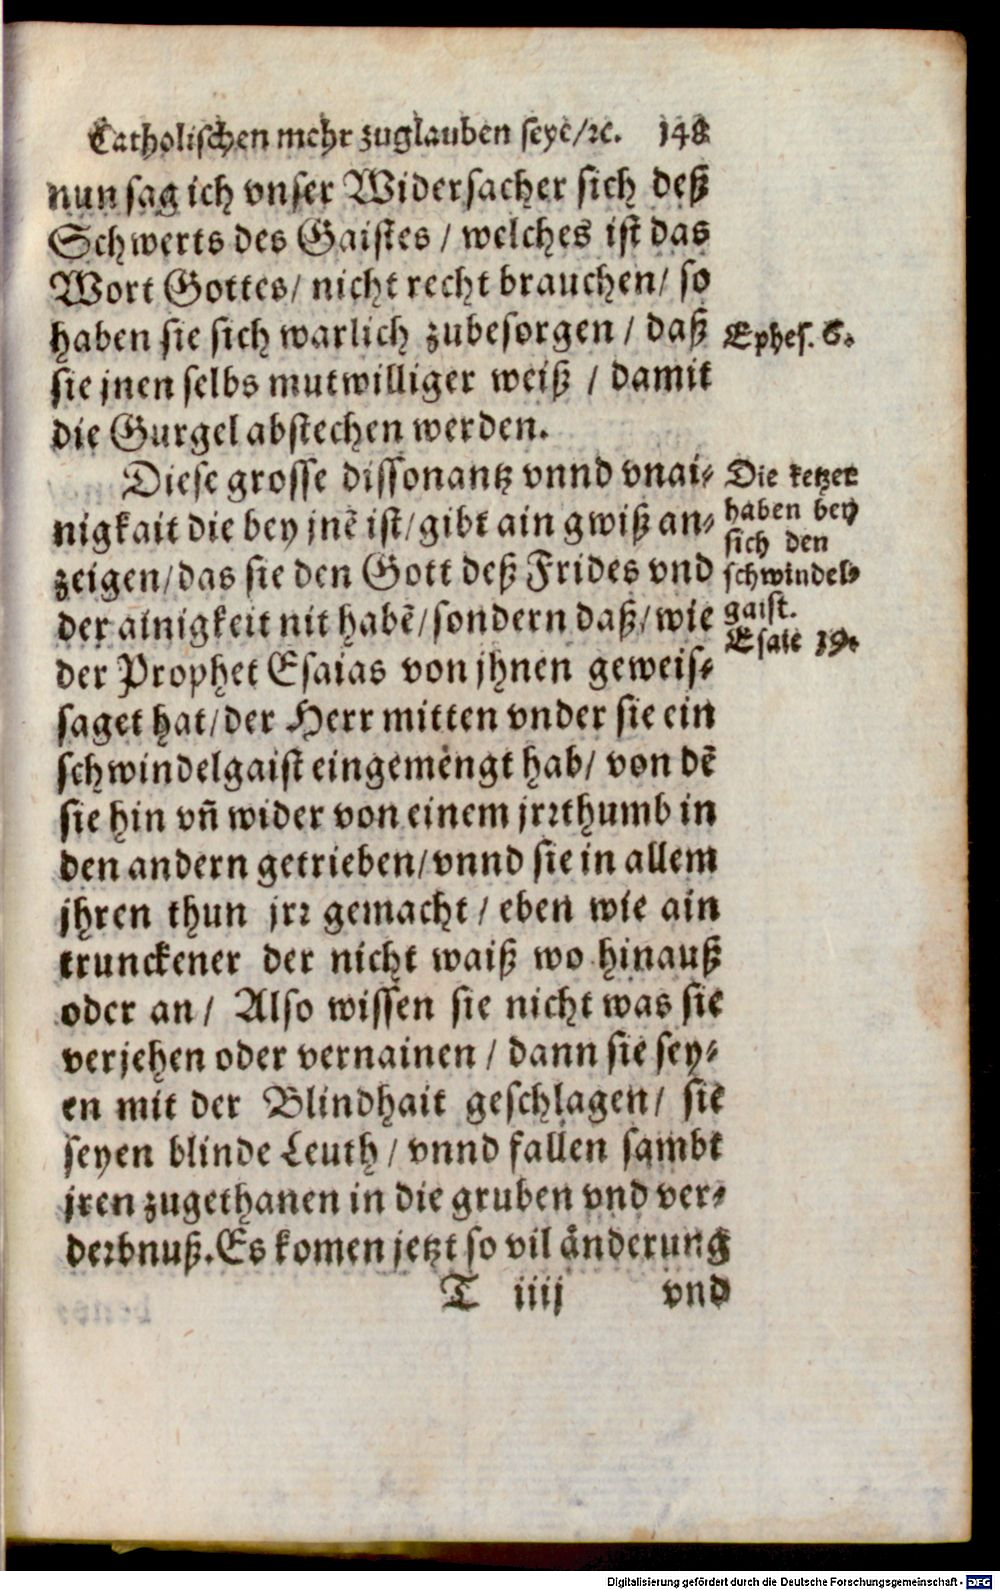 Catholischen mehr zuglauben seyē/ꝛc. 148
nun sag ich vnser Widersacher sich deß
Schwerts des Gaistes / welches ist das
Wort Gottes/ nicht recht brauchen/ so
haben sie sich warlich zubesorgen / daß
Ephes. 6.
sie jnen selbs mutwilliger weiß / damit
die Gurgel abstechen werden.
Diese grosse dissonantz vnnd vnai-
nigkait die bey jnē ist/gibt ain gwiß an-
zeigen/das sie den Gott deß Frides vnd
der ainigkeit nit habē/sondern daß/wie
der Prophet Esaias von jhnen geweis-
saget hat/der Herr mitten vnder sie ein
schwindelgaist eingemengt hab/ von dē
sie hin vñ wider von einem jrꝛthumb in
den andern getrieben/vnnd sie in allem
jhren thun jrꝛ gemacht / eben wie ain
trunckener der nicht waiß wo hinauß
oder an / Also wissen sie nicht was sie
verjehen oder vernainen / dann sie sey-
en mit der Blindhait geschlagen/ sie
seyen blinde Leuth / vnnd fallen sambt
jren zugethanen in die gruben vnd ver-
deꝛbnuß.Es komen jetzt so vil åndeꝛung
Die ketzer
haben bey
sich den
schwindel-
gaist.
Esaie 19.
T iiij vnd
Digitalisierung gefördert durch die Deutsche Forschungsgemeinschaft - DFG